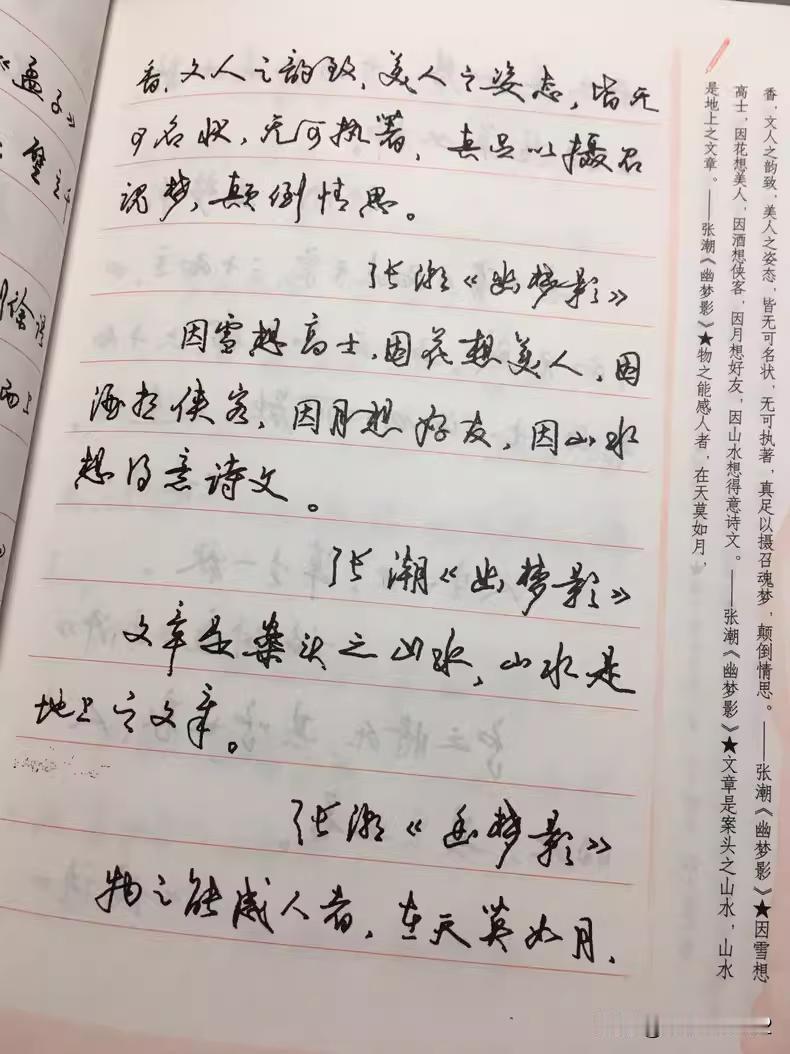 香，文人之韵致，美人之姿态，皆无
可名状，无可执著，真足以摄召
魂梦，颠倒情思。
张潮《幽梦影》
因雪想高士，因花想美人，因
酒想侠客，因月想好友，因山水
想得意诗文。
张潮《幽梦影》
文章是案头之山水，山水是
地上之文章。
张潮《幽梦影》
物之能感人者，在天莫如月，
香，文人之韵致，美人之姿态，皆无可名状，无可执著，真足以摄召魂梦，颠倒情思。——张潮《幽梦影》★因雪想
高士，因花想美人，因酒想侠客，因月想好友，因山水想得意诗文。——张潮《幽梦影》★文章是案头之山水，山水
是地上之文章。——张潮《幽梦影》★物之能感人者，在天莫如月，
《孟子》